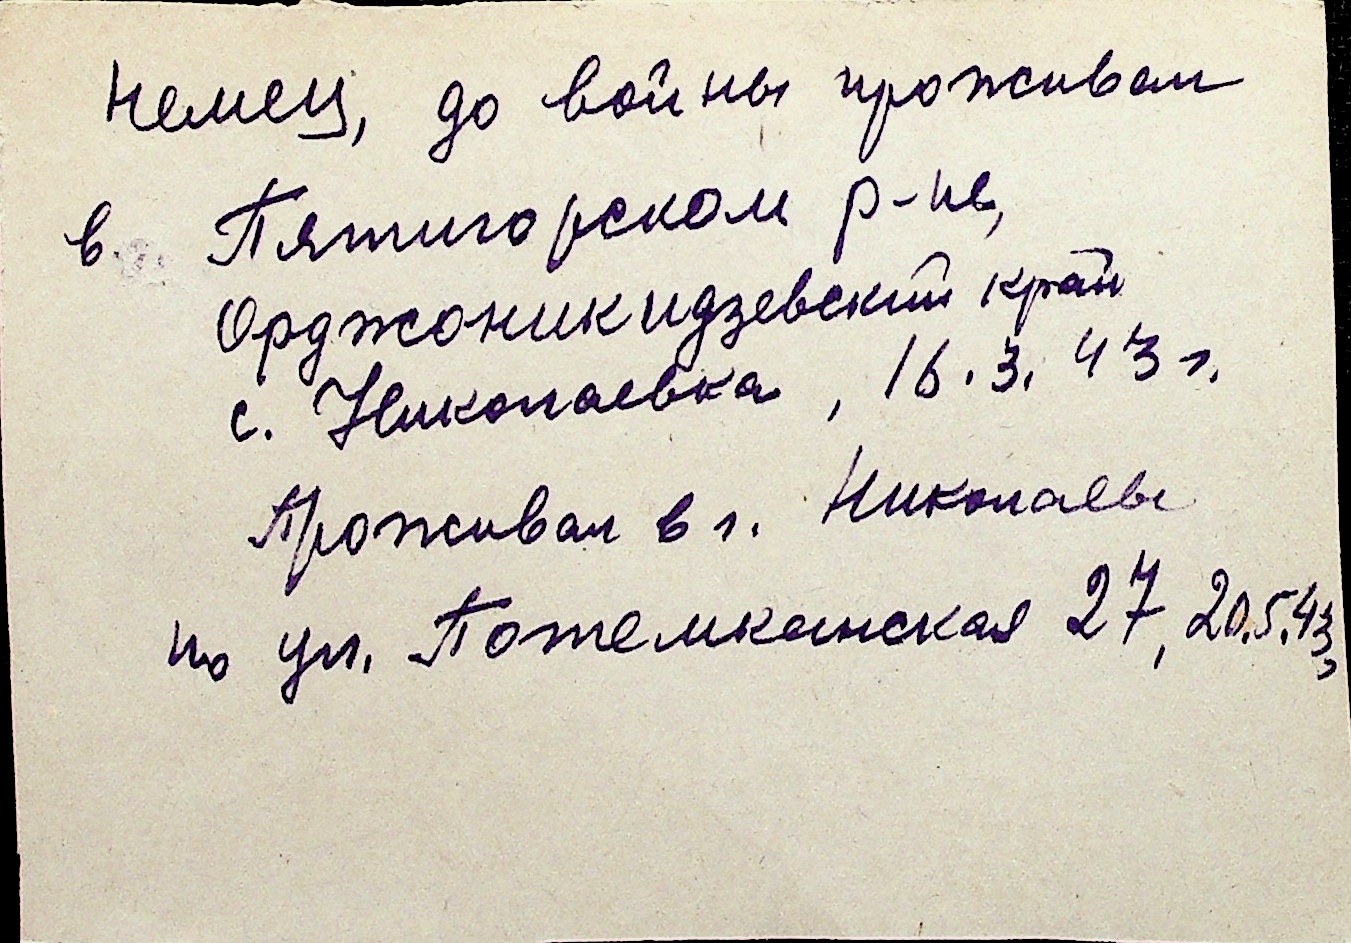 Немец, до войны проживал
в Пятигорском р-не,
Орджоникидзевский край
с. Николаевка, 16.3.43 г.
Проживал в г. Николаеве
по ул. Потемкинская 27, 20.5.43,